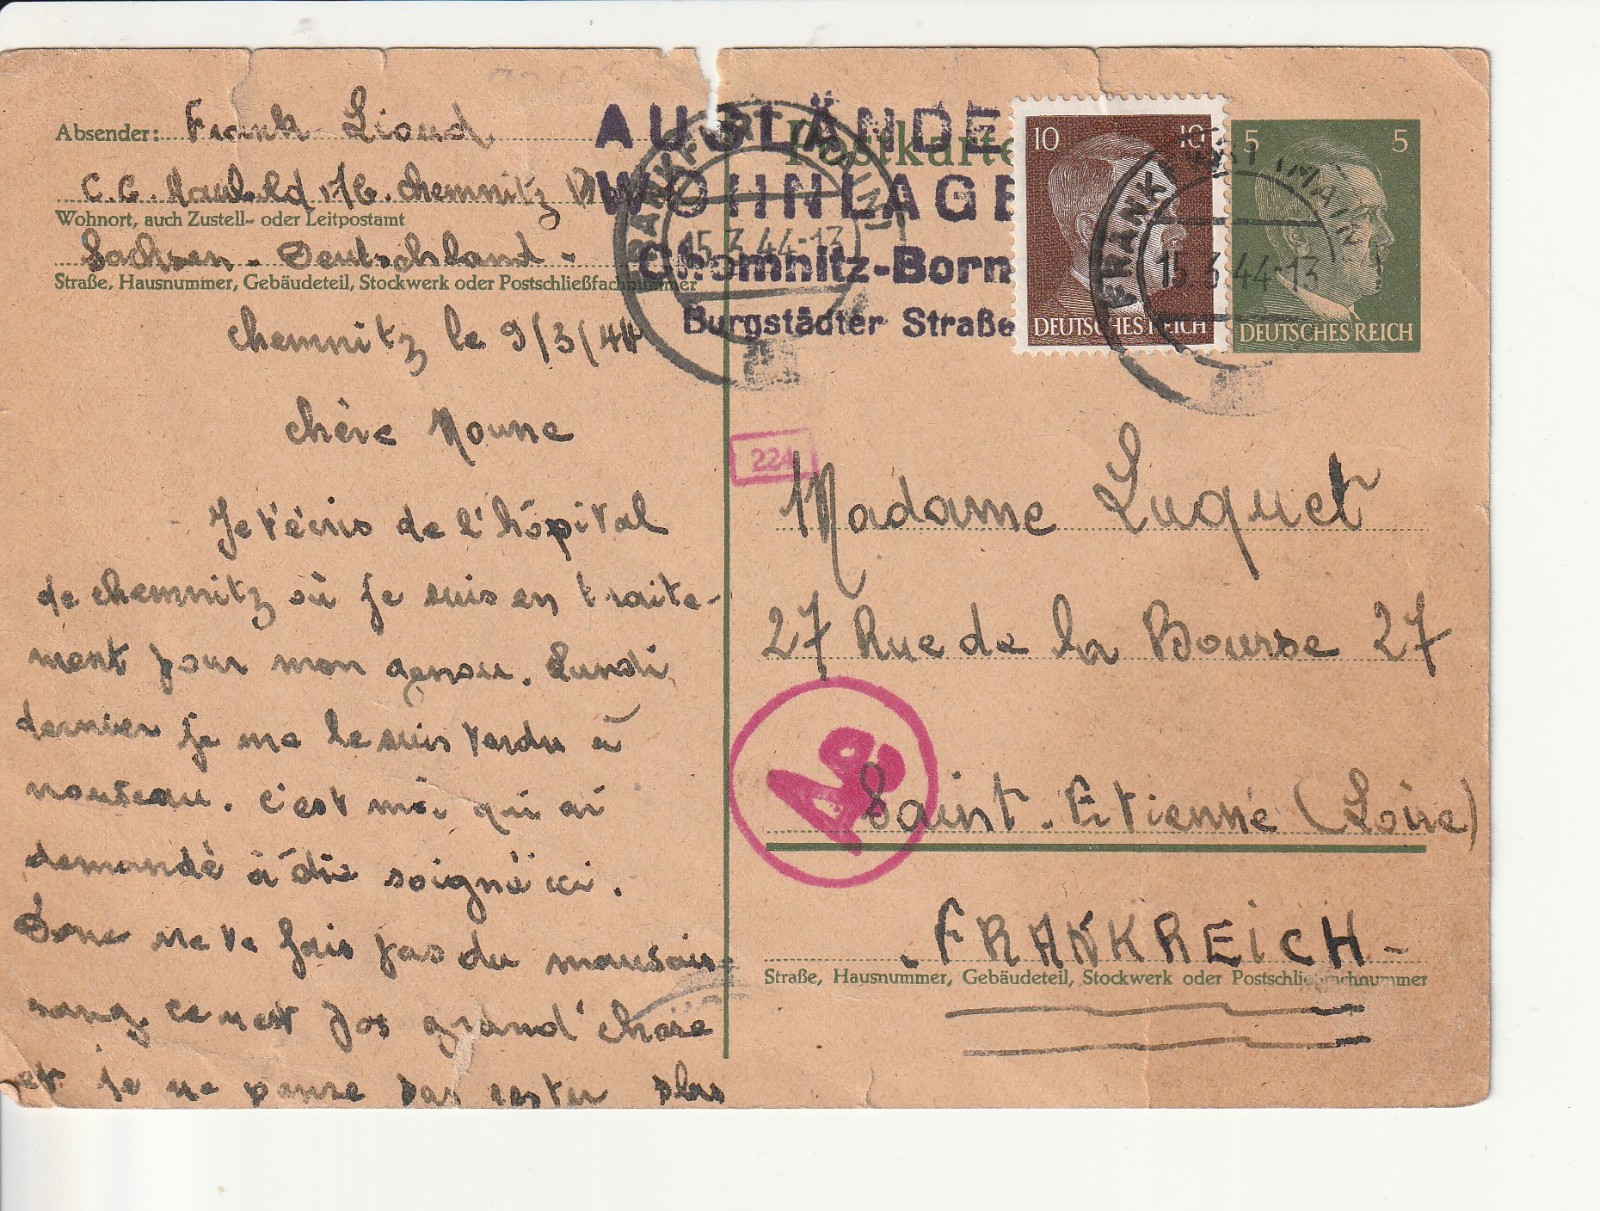 Absender: Frank Lioud
C.C. 1/76. Chemnitz
Wohnort, auch Zustell- oder Leitpostamt
Sachsen - Deutschland -
Straße, Hausnummer, Gebäudeteil, Stockwerk oder Postschließfachnummer
AUSLÄNDE
WOHNLAGE
Chemnitz-Born
Burgstädter Straße
Postkarte
FRANKFURT (MAIN) 15.3.44-13
10 10
DEUTSCHES REICH
5 5
DEUTSCHES REICH
FRANKFURT (MAIN) 15.3.44-13
Chemnitz le 9/3/44
Chère Noune
Je t'écris de l'hôpital
de Chemnitz où je suis en traite-
ment pour mon genou. Lundi
dernier je me le suis tordu à
nouveau. C'est moi qui ai
demandé à être soigné ici.
Donc ne te fais pas du mauvais
sang ce n'est pas grand'chose
et je ne pense pas rester plus
224
Madame Luquet
27 Rue de la Bourse 27
Saint-Etienne (Loire)
- FRANKREICH -
Straße, Hausnummer, Gebäudeteil, Stockwerk oder Postschließfachnummer